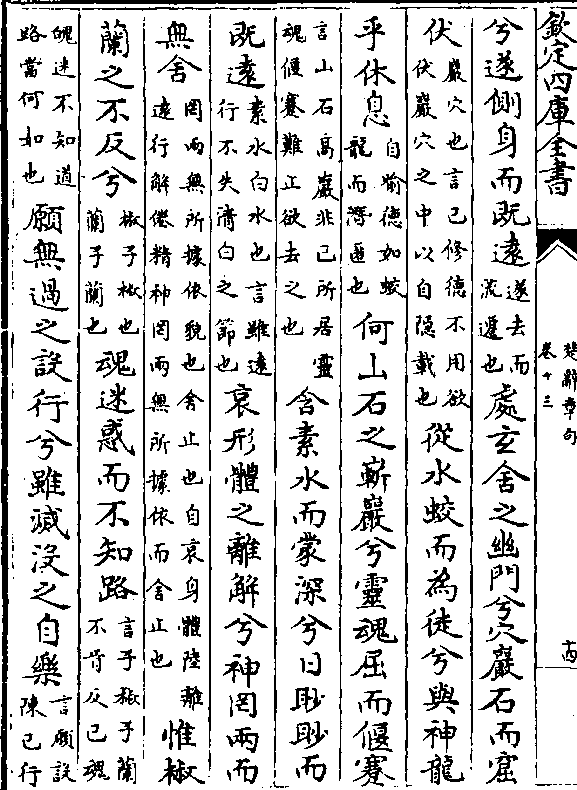 欽定四庫全書 楚辭章句 卷十三 十四
兮遂側身而既遠遂去而流遷也處玄舍之幽門兮穴巖石而窟
伏巖穴也言己修德不用欲伏巖穴之中以自隱載也從水蛟而為徒兮與神龍
乎休息自喻德如蛟龍而潛匿也何山石之嶄巖兮靈魂屈而偃蹇
言山石高巖非己所居靈魂偃蹇難止欲去之也含素水而蒙深兮日眇眇而
既遠素水白水也言雖遠行不失清白之節也哀形體之離解兮神罔兩而
無舍罔兩無所據依貌也舍止也自哀身體陸離遠行解倦精神罔兩無所據依而舍止也惟椒
蘭之不反兮椒子椒也蘭子蘭也魂迷惑而不知路言子椒子蘭不肯反己魂
魄迷不知道路當何如也願無過之設行兮雖滅沒之自樂言願設陳己行